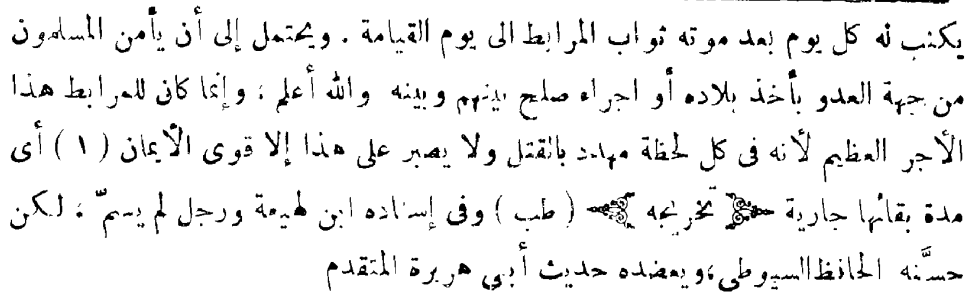 يكتب له كل يوم بعد موته ثواب المرابط الى يوم القيامة . ويحتمل إلى أن يأمن المسلمون
من جهة العدو بأخذ بلاده أو اجراء صلح بينهم وبينه والله أعلم ، وإنما كان للمرابط هذا
الأجر العظيم لأنه فى كل لحظة مهدد بالقتل ولا يصبر على هذا إلا قوى الأيمان ( ١ ) أى
مدة بقائها جارية ﴿ تخريجه ﴾ ( طب ) وفى إسناده ابن لهيعة ورجل لم يسمّ ، لكن
حسَّنه الحافظ السيوطى، ويعضده حديث أبي هريرة المتقدم